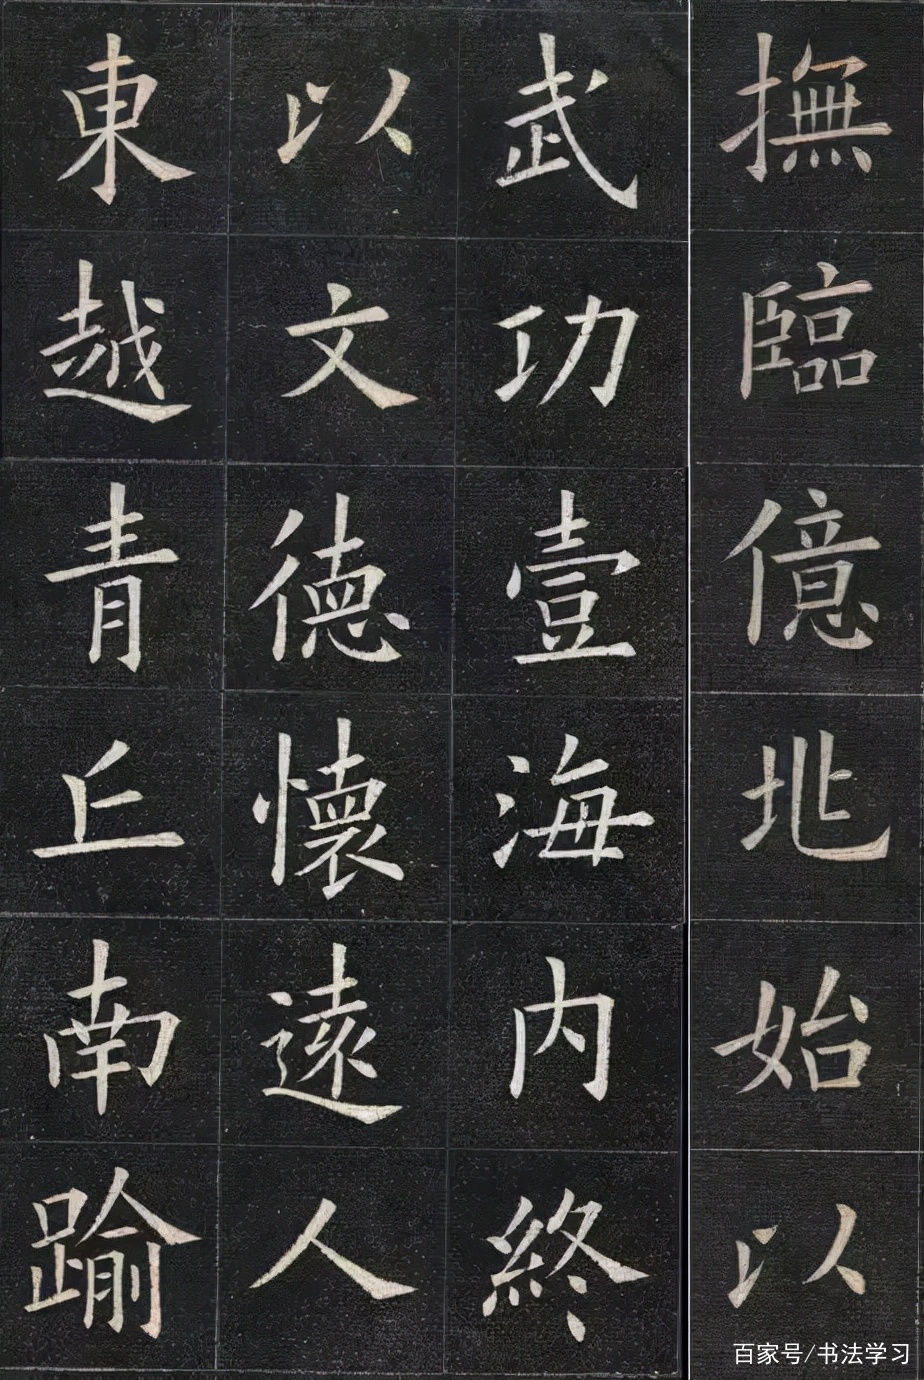 撫臨億兆始以
武功壹海内終
以文德懷遠人
東越青丘南踰
百家号/书法学习